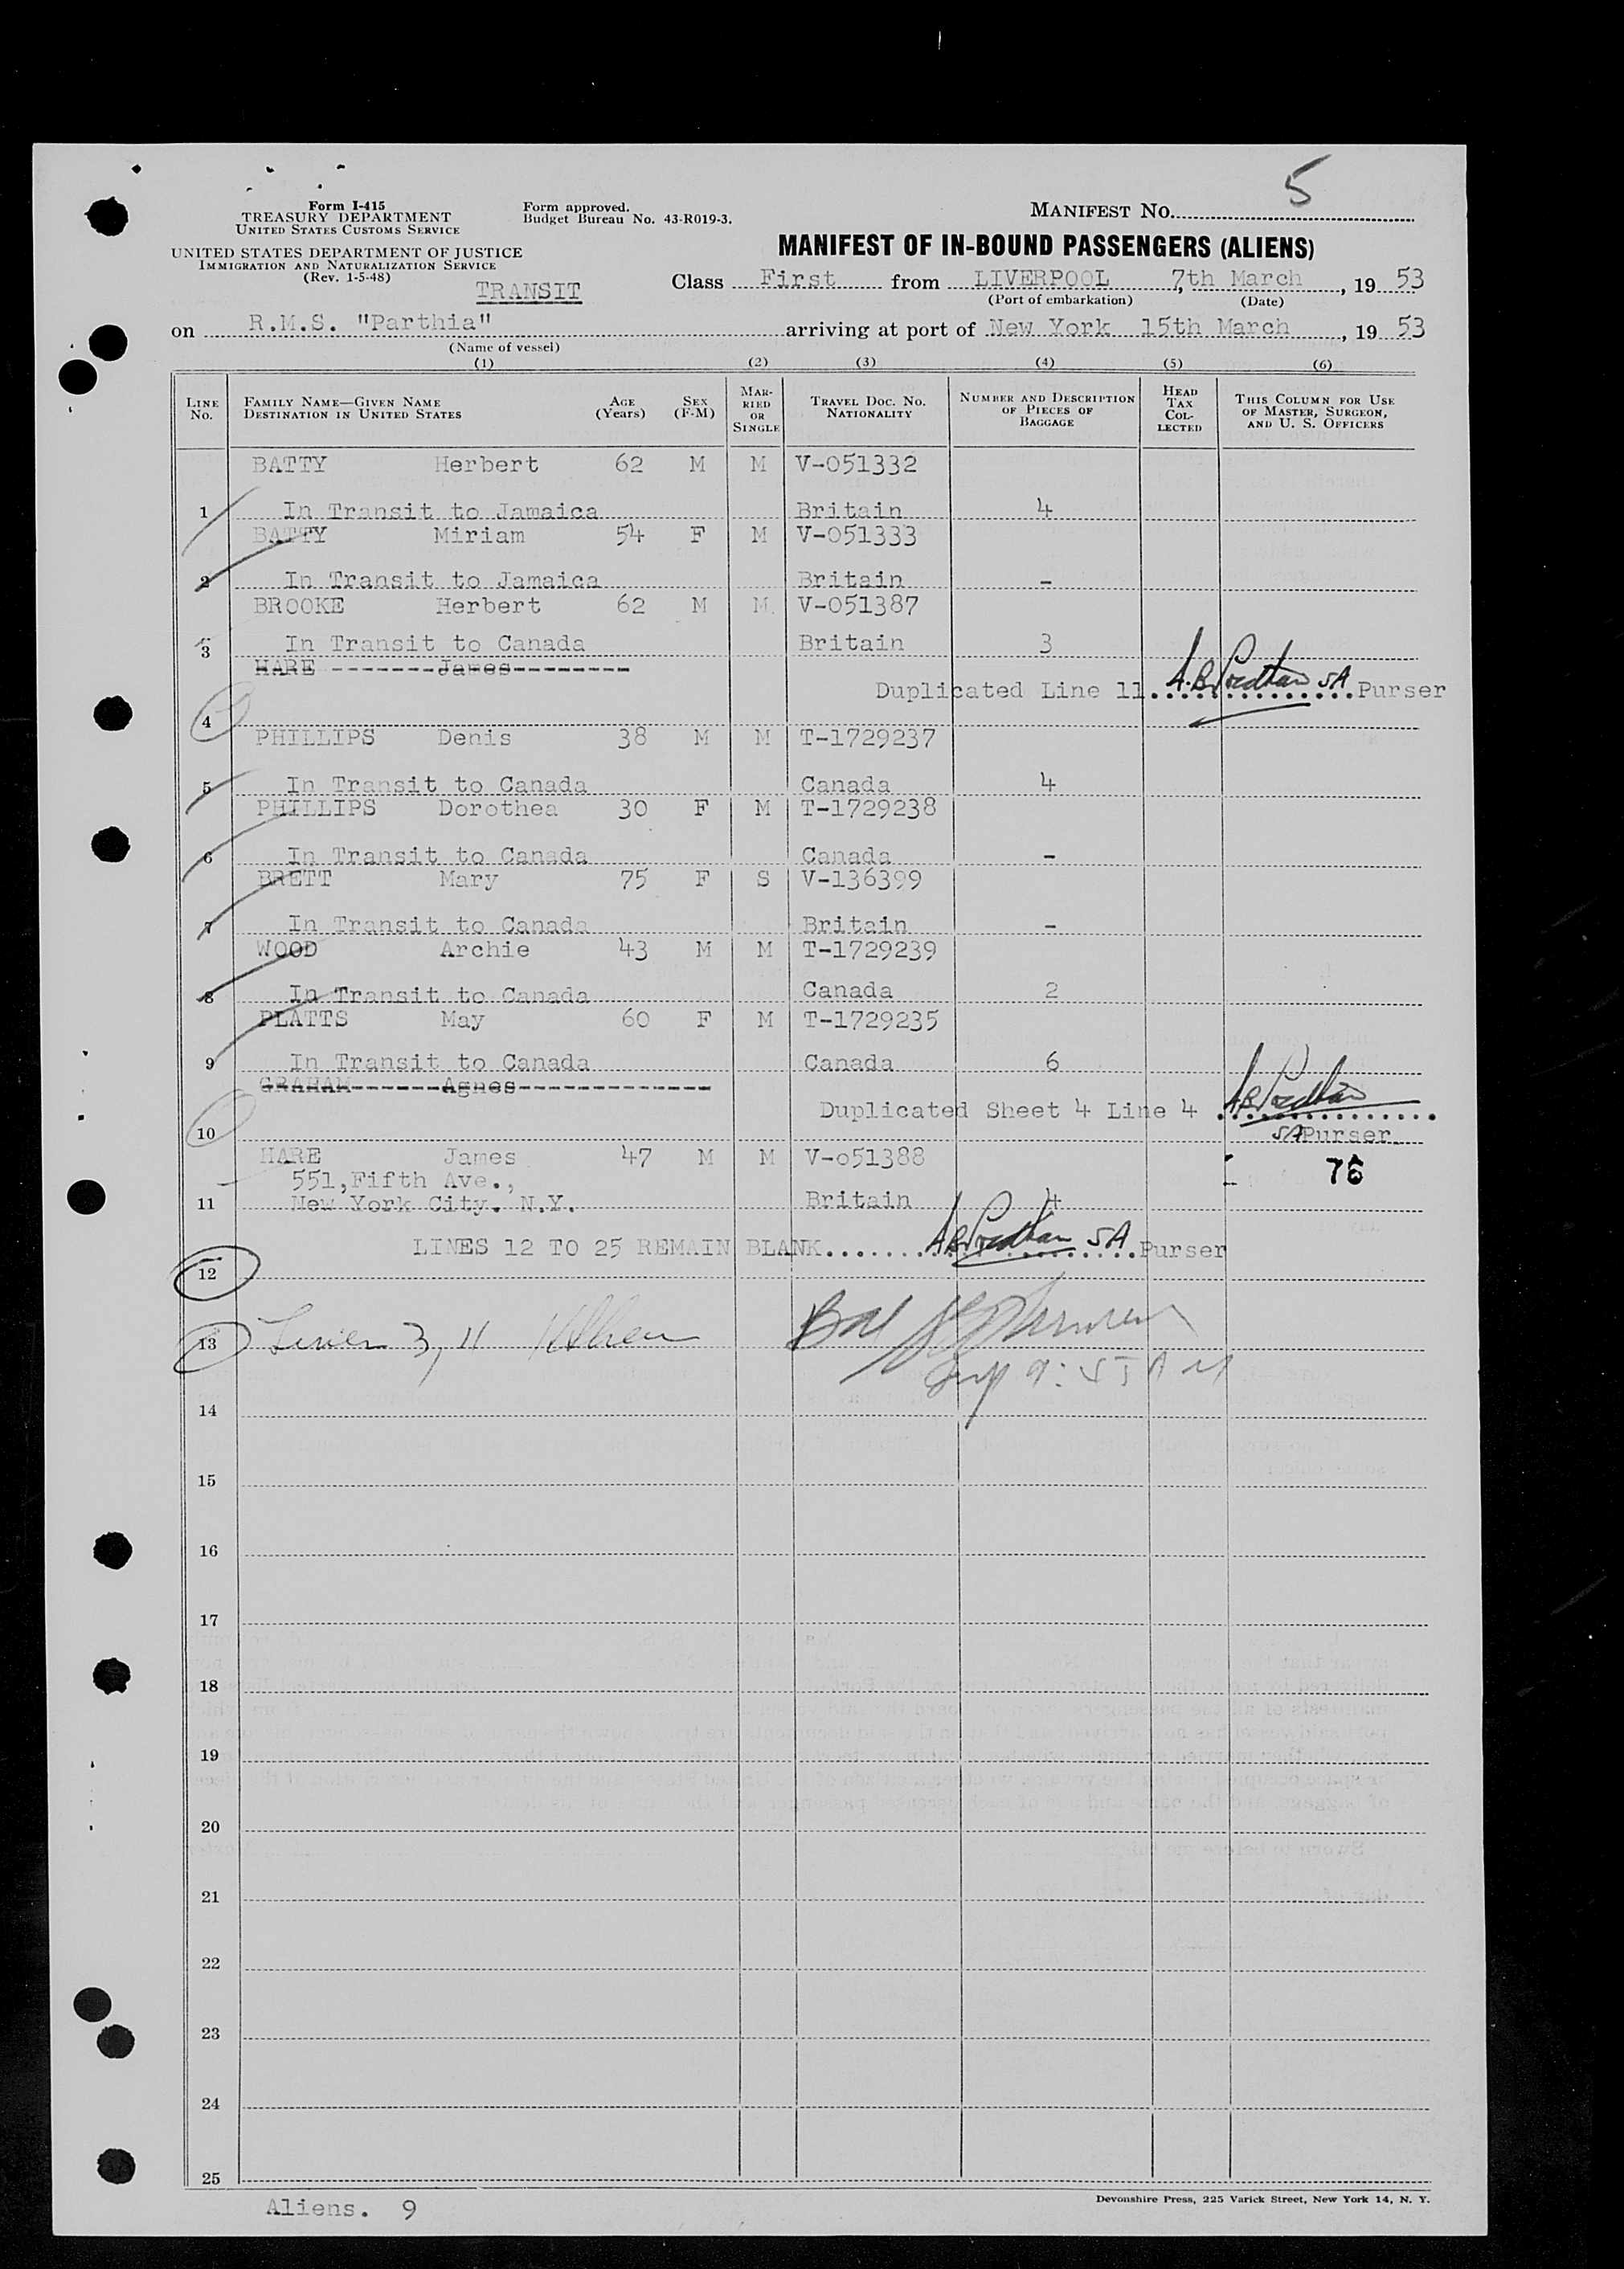 5
Form I-415
TREASURY DEPARTMENT
UNITED STATES CUSTOMS SERVICE
Form approved.
Budget Bureau No. 43-R019-3.
MANIFEST NO.
UNITED STATES DEPARTMENT OF JUSTICE
IMMIGRATION AND NATURALIZATION SERVICE
(Rev. 1-5-48)
MANIFEST OF IN-BOUND PASSENGERS (ALIENS)
TRANSIT
Class First from LIVERPOOL 7th March, 1953
(Port of embarkation) (Date)
on R.M.S. "Parthia" arriving at port of New York 15th March, 1953
(Name of vessel)
(1) (2) (3) (4) (5) (6)
LINE NO.
FAMILY NAME—GIVEN NAME
DESTINATION IN UNITED STATES
AGE (Years)
SEX (F-M)
MARRIED OR SINGLE
TRAVEL DOC. NO. NATIONALITY
NUMBER AND DESCRIPTION OF PIECES OF BAGGAGE
HEAD TAX COLLECTED
THIS COLUMN FOR USE OF MASTER, SURGEON, AND U. S. OFFICERS
BATTY Herbert 62 M M V-051332
1 In Transit to Jamaica Britain 4
BATTY Miriam 54 F M V-051333
2 In Transit to Jamaica Britain -
BROOKE Herbert 62 M M. V-051387
3 In Transit to Canada Britain 3
HARE -------James--------
Duplicated Line 11 SA Purser
4
PHILLIPS Denis 38 M M T-1729237
5 In Transit to Canada Canada 4
PHILLIPS Dorothea 30 F M T-1729238
6 In Transit to Canada Canada -
BRETT Mary 75 F S V-136399
7 In Transit to Canada Britain -
WOOD Archie 43 M M T-1729239
8 In Transit to Canada Canada 2
PLATTS May 60 F M T-1729235
9 In Transit to Canada Canada 6
GRAHAM------Agnes-------------
Duplicated Sheet 4 Line 4
10 SA Purser
HARE James 47 M M V-o51388
551,Fifth Ave., 76
11 New York City. N.Y. Britain 4
LINES 12 TO 25 REMAIN BLANK SA Purser
12
13 Lines 3, 11
9:55 AM
14
15
16
17
18
19
20
21
22
23
24
25
Aliens. 9
Devonshire Press, 225 Varick Street, New York 14, N. Y.